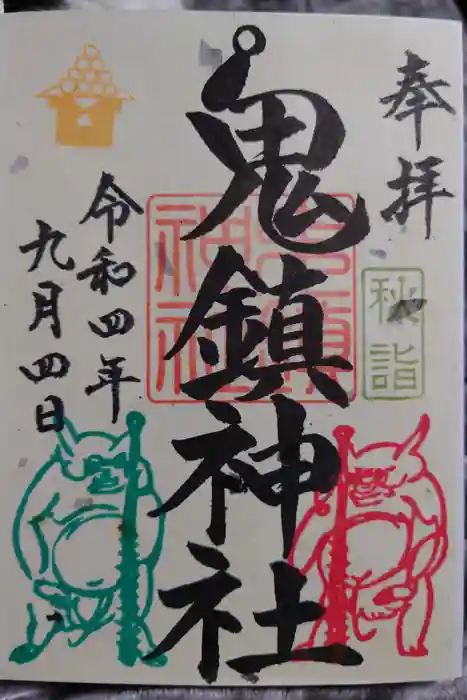 奉拝
秋詣
鬼鎮神社
鬼鎮
神社
令和四年
九月四日